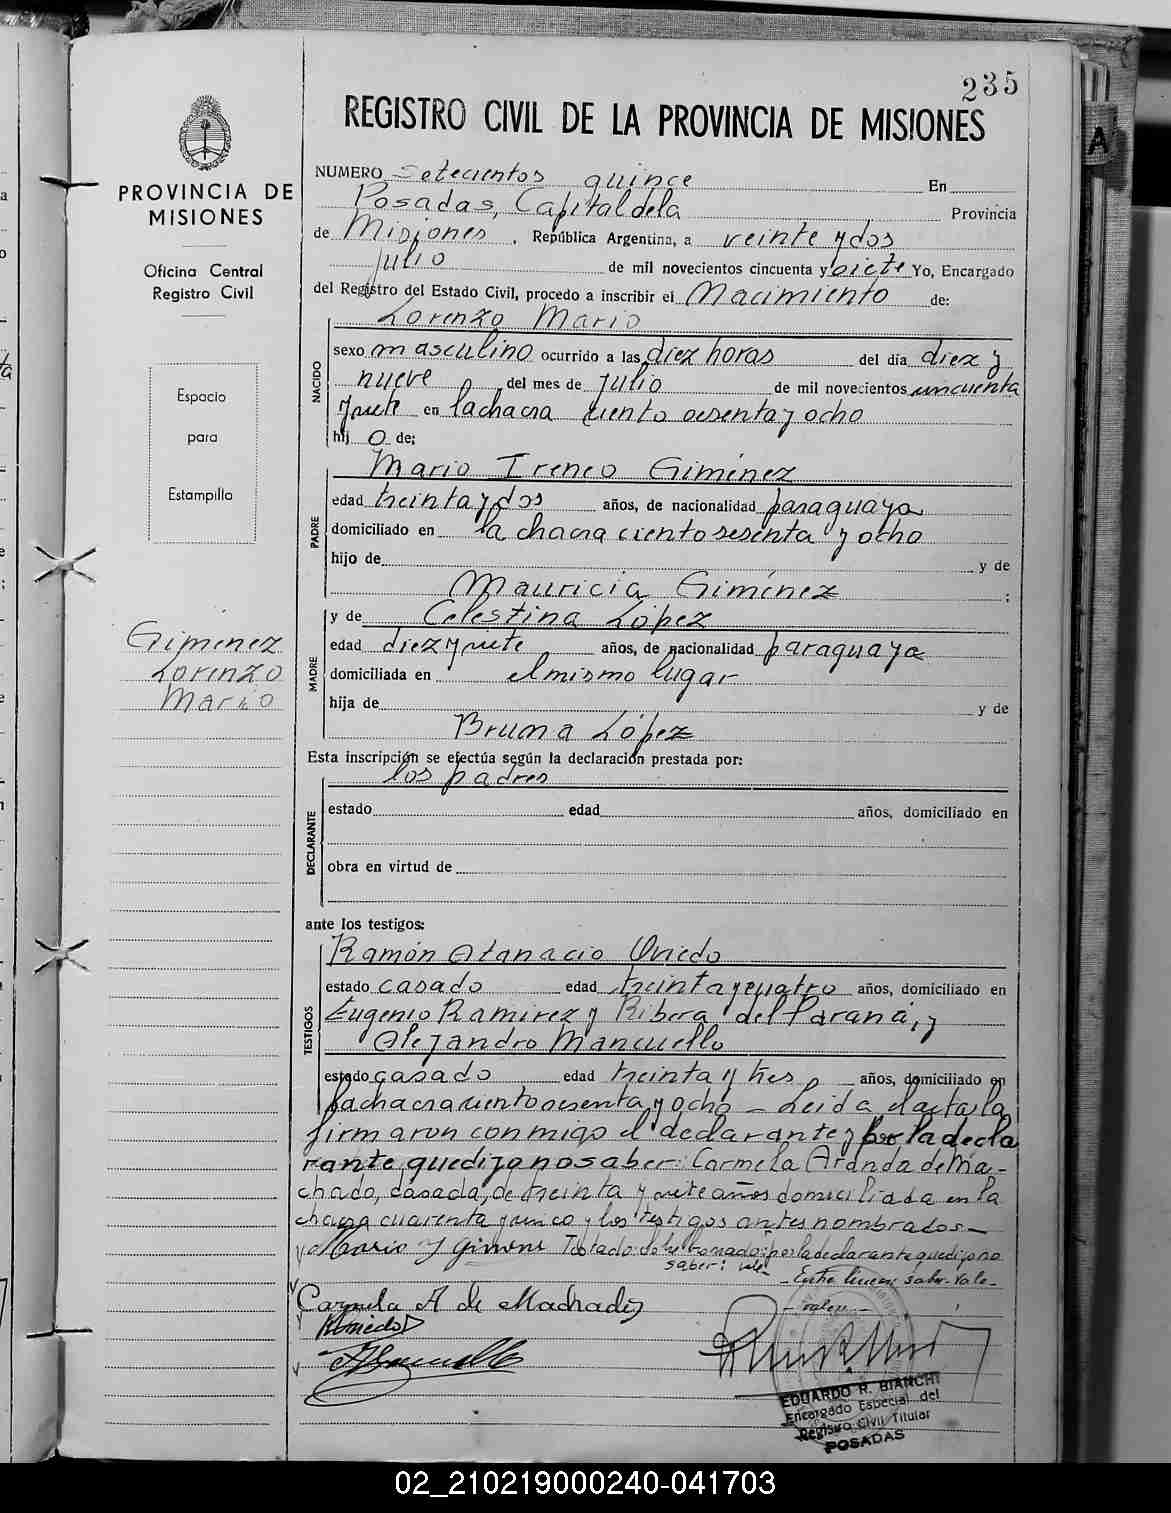 235
REGISTRO CIVIL DE LA PROVINCIA DE MISIONES
PROVINCIA DE
MISIONES
Oficina Central
Registro Civil
Espacio
para
Estampilla
Gimenez
Lorenzo
Mario
NUMERO Setecientos quince En
Posadas, Capital de la Provincia
de Misiones, República Argentina, a veinte y dos
julio de mil novecientos cincuenta y siete Yo, Encargado
del Registro del Estado Civil, procedo a inscribir el Nacimiento de:
Lorenzo Mario
NACIDO
sexo masculino ocurrido a las diez horas del día diez y
nueve del mes de julio de mil novecientos cincuenta
y siete en la chacra ciento sesenta y ocho
hij o de;
Mario Ireneo Giménez
PADRE
edad treinta y dos años, de nacionalidad paraguaya
domiciliado en la chacra ciento sesenta y ocho
hijo de y de
Mauricia Giménez ;
y de Celestina López
MADRE
edad diez y siete años, de nacionalidad paraguaya
domiciliada en el mismo lugar
hija de y de
Bruna López
Esta inscripción se efectúa según la declaración prestada por:
los padres
DECLARANTE
estado edad años, domiciliado en
obra en virtud de
ante los testigos:
TESTIGOS
Ramón Atanacio Oviedo
estado casado edad treinta y cuatro años, domiciliado en
Eugenio Ramirez y Ribera del Paraná, y
Alejandro Mancuello
estado casado edad treinta y tres años, domiciliado en
la chacra ciento sesenta y ocho - Leida el acta la
firmaron conmigo el declarante y por la decla
rante que dijo no saber: Carmela Aranda de Ma-
chado, casada, de treinta y siete años domiciliada en la
chacra cuarenta y cinco y los testigos antes nombrados-
Mario Y Gimene Testado: sobre borrado: por la declarante que dijo no
saber: vale
- Entre lineas: saber. Vale-
Carmela A de Machado
- valen -
ROviedo
AMancuello
EDUARDO R. BIANCHI
Encargado Especial del
Registro Civil Titular
POSADAS
02_210219000240-041703